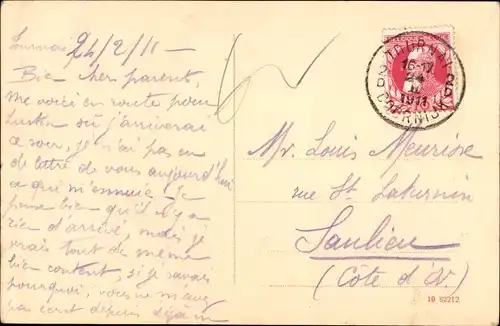 Tournai 24/2/11 -
Bien chers parents,
Me voici en route pour
où j'arriverai
ce soir, je n'ai pas eu
de lettre de vous aujourd'hui
ce qui m'ennuie. Je
pense bien qu'il n'y a
rien d'arrivé, mais je
serais tout de même
bien content, si je savais
pourquoi, vous ne m'avez
pas écrit depuis déjà
TOURNAI
16-17
24
II
1911
DOORNIJK
Mr Louis Meurisse
rue St Saturnin
Saulieu
(Côte d'Or)
10 82212